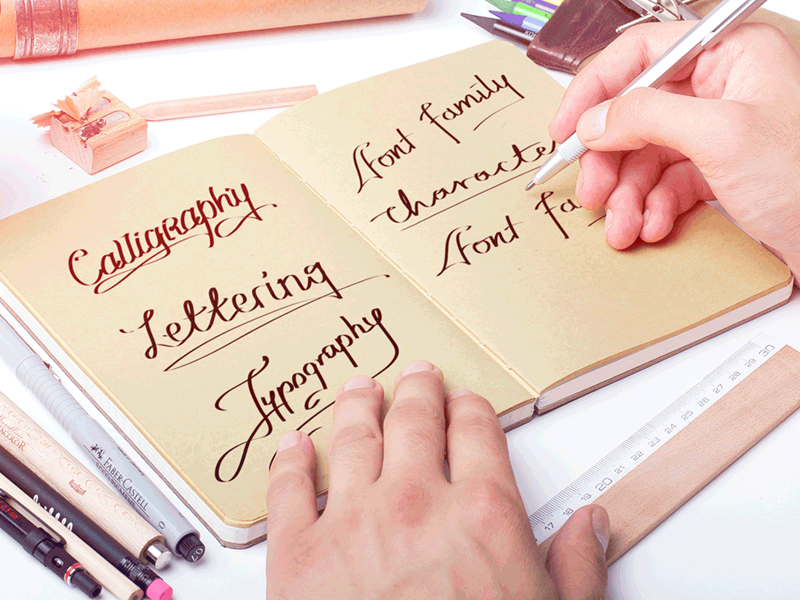 Calligraphy
Lettering
Typography
Font Family
character
Font Fa
FABER-CASTELL
17 18 19 20 21 22 23 24 25 26 27 28 29 30